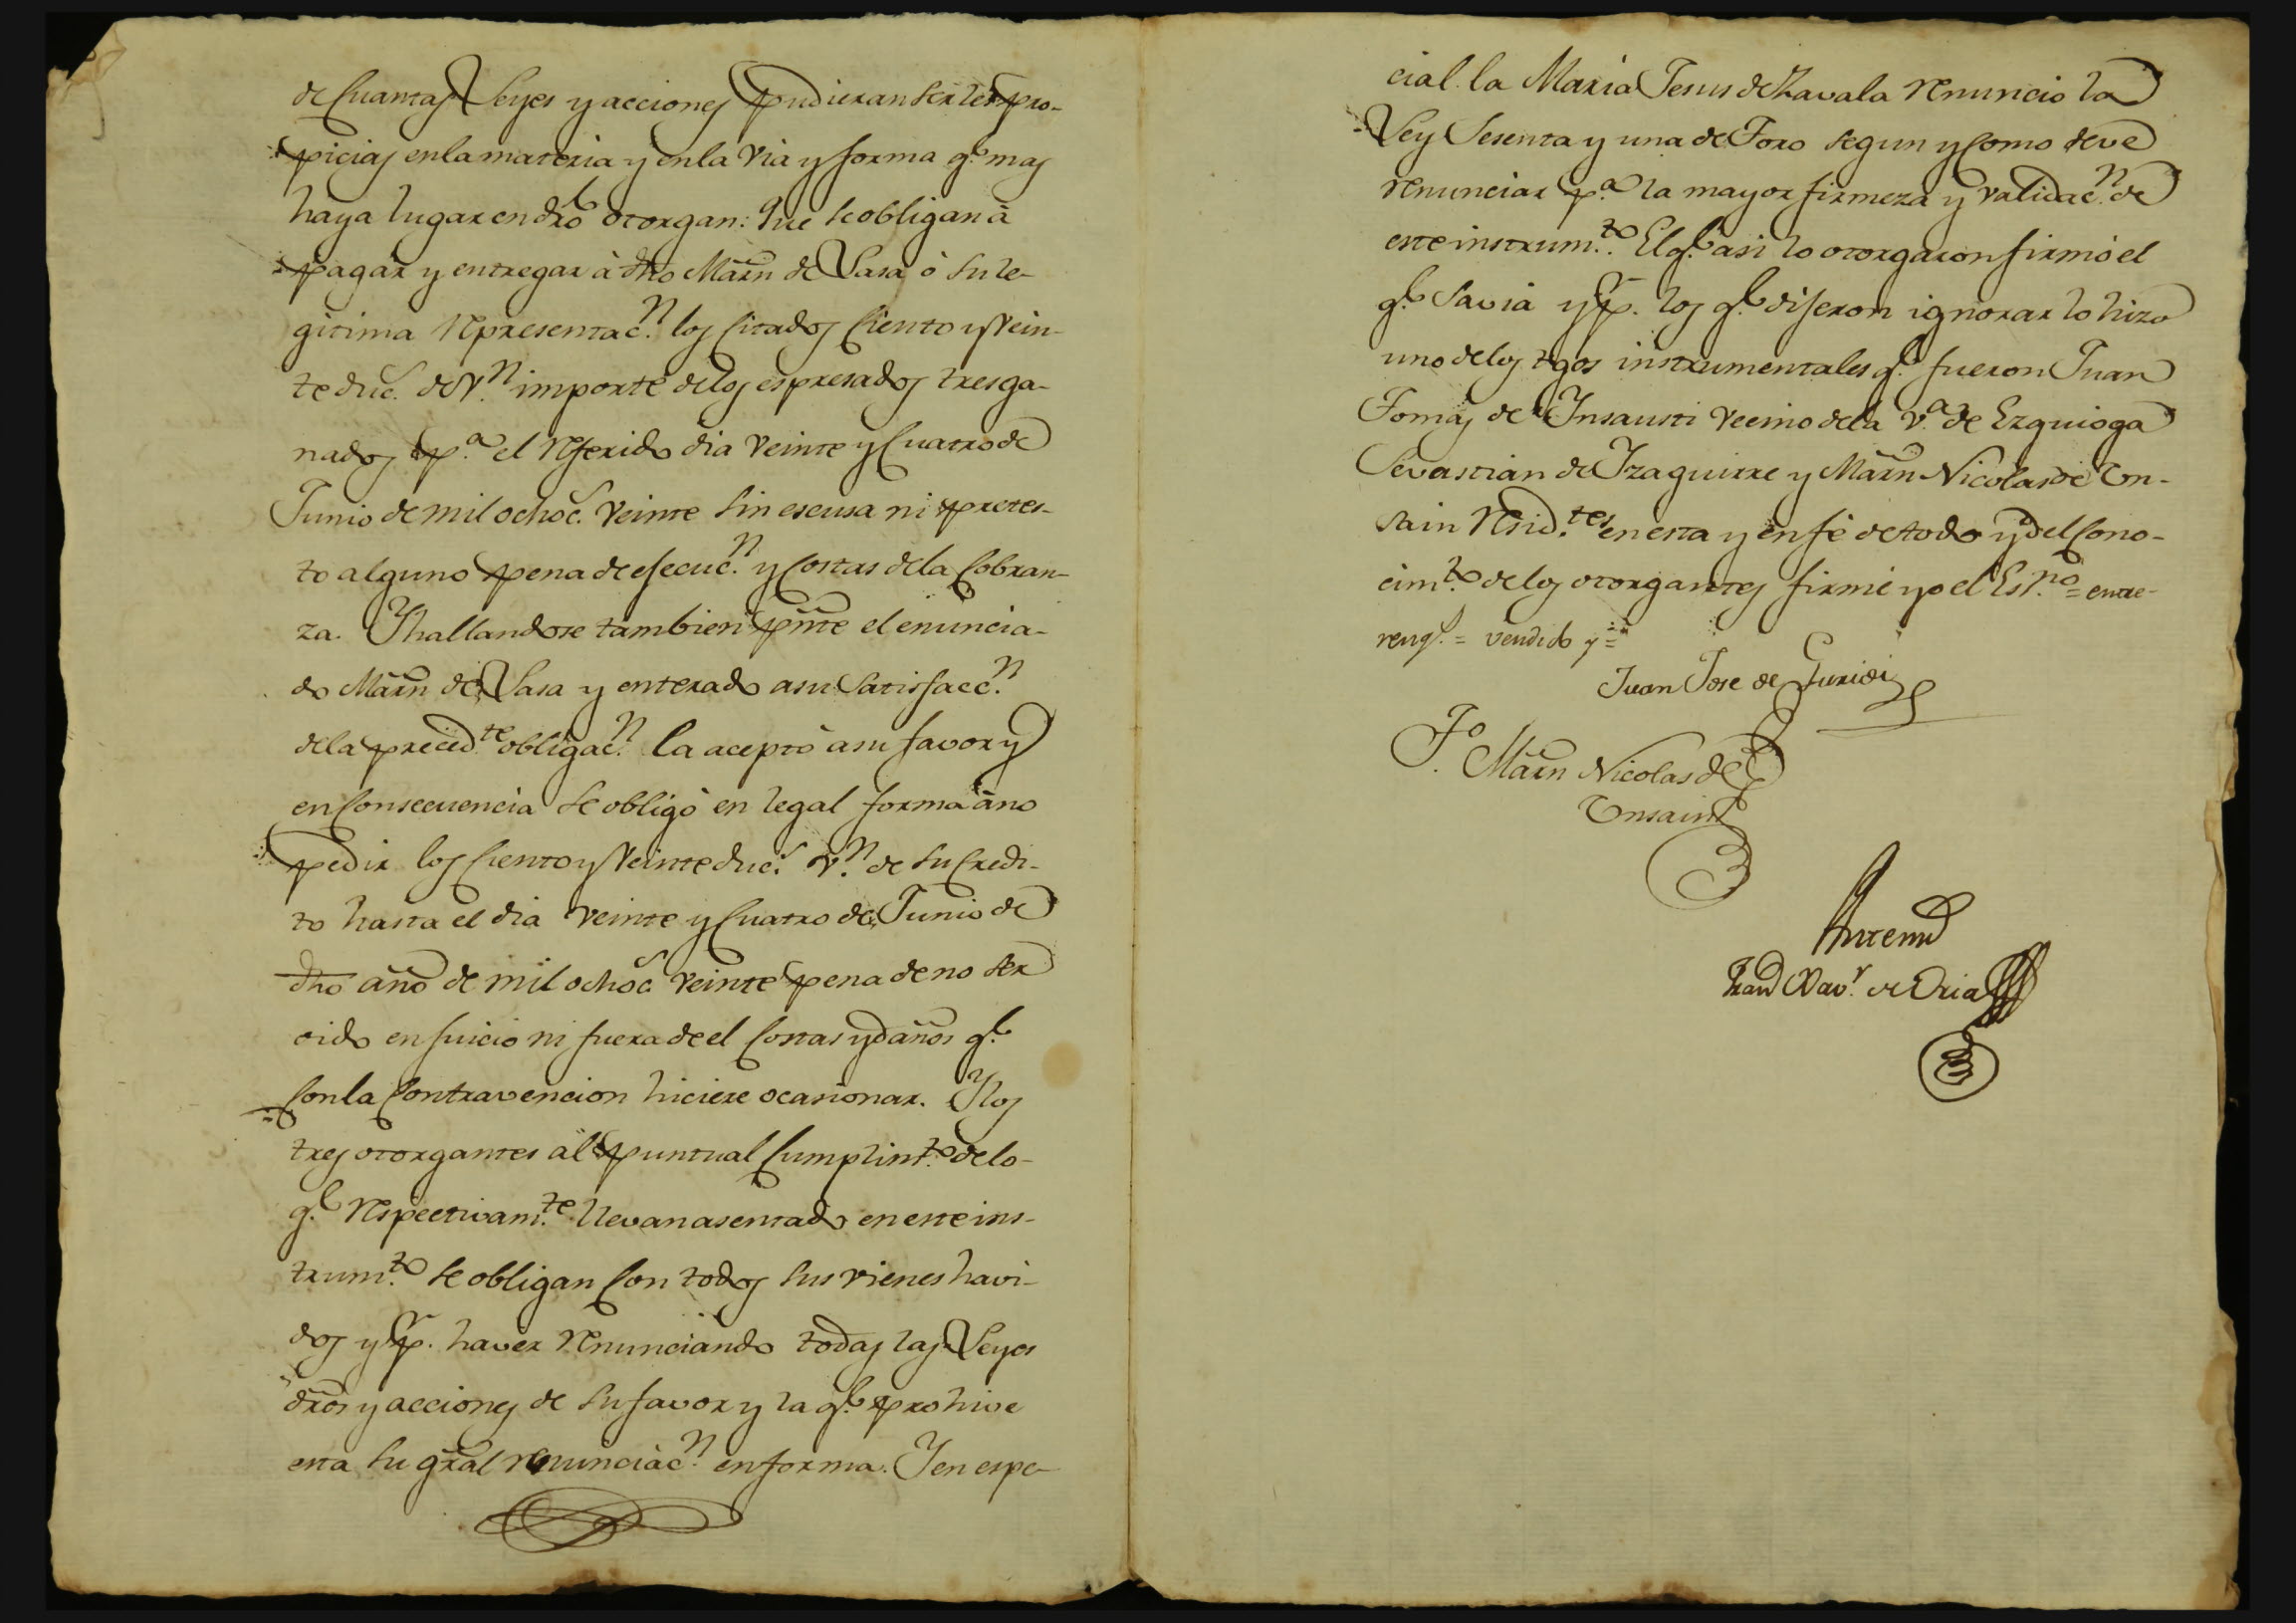 de Cuantas Leyes y acciones pudieran serles pro-
piciaς en la materia y en la via y forma q.e mas
haya lugar en dro otorgan: Que se obligan à
pagar y entregar à dho Marn de Lasa ó su le-
gitima representac.n los citados Ciento y Vein-
te duc.s de v.n importe de los espresados tres ga-
nados p.a el referido dia veinte y Cuatro de
Junio de mil ochoc.s veinte sin escusa ni pretes-
to alguno pena de ejecuc.n y Costas dela Cobran-
za. Y hallandose tambien pnte el enuncia-
do Marn de Lasa y enterado asu satisfacc.n
dela preced.te obligac.n la aceptó asu favor y
en Consecuencia se obligó en legal forma àno
pedir los Ciento y Veinte duc.s v.n de su Credi-
to hasta el dia veinte y Cuatro de Junio de
dho año de mil ochoc.s veinte pena de no ser
oido en juicio ni fuera de el Costas y daños q.e
Con la Contravencion hiciere ocasionar. Y los
tres otorgantes al puntual Cumplim.to de lo-
q.e respectivam.te llevan asentado en este ins-
trum.to se obligan Con todos sus vienes havi-
dos y p.r haver renunciando todas las Leyes
dros y acciones de su favor y la q.e prohive
esta su gral renunciac.n en forma. Y en espe-
cial la Maria Jesus de Zavala renuncio la
Ley Sesenta y una de Toro segun y Como deve
renunciar p.a la mayor firmeza y validac.n de
este instrum.to. El q.e asi lo otorgaron firmó el
q.e savia y p.r los q.e dijeron ignorar lo hizo
uno delos tgos instrumentales q.e fueron Juan
Tomas de Insausti vecino dela v.a de Ezquioga
Sevastian de Izaguirre y Marn Nicolas de Un-
sain resid.tes en esta y en fé de todo y del Cono-
cim.to de los otorgantes firmé yo el Es.no = entre-
reng.s = vendido y =
Juan Jose de Guridi
T.o Marn Nicolas de
Unsain
Antemi
Fran.co Xav.r de Oria